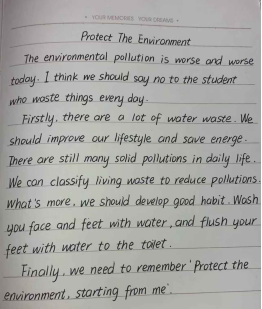 • YOUR MEMORIES YOUR DREAMS •
Protect The Environment
The environmental pollution is worse and worse
today. I think we should say no to the student
who waste things every day.
Firstly, there are a lot of water waste. We
should improve our lifestyle and save energe.
There are still many solid pollutions in daily life.
We can classify living waste to reduce pollutions.
What's more, we should develop good habit. Wash
you face and feet with water, and flush your
feet with water to the toilet.
Finally, we need to remember 'Protect the
environment, starting from me'.